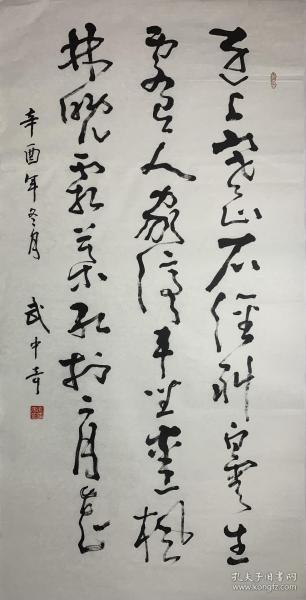 遠上寒山石徑斜白雲生
處有人家停車坐愛楓
林晚霜葉紅於二月花
辛酉年冬月 武中奇
孔夫子旧书网
kongfz.com